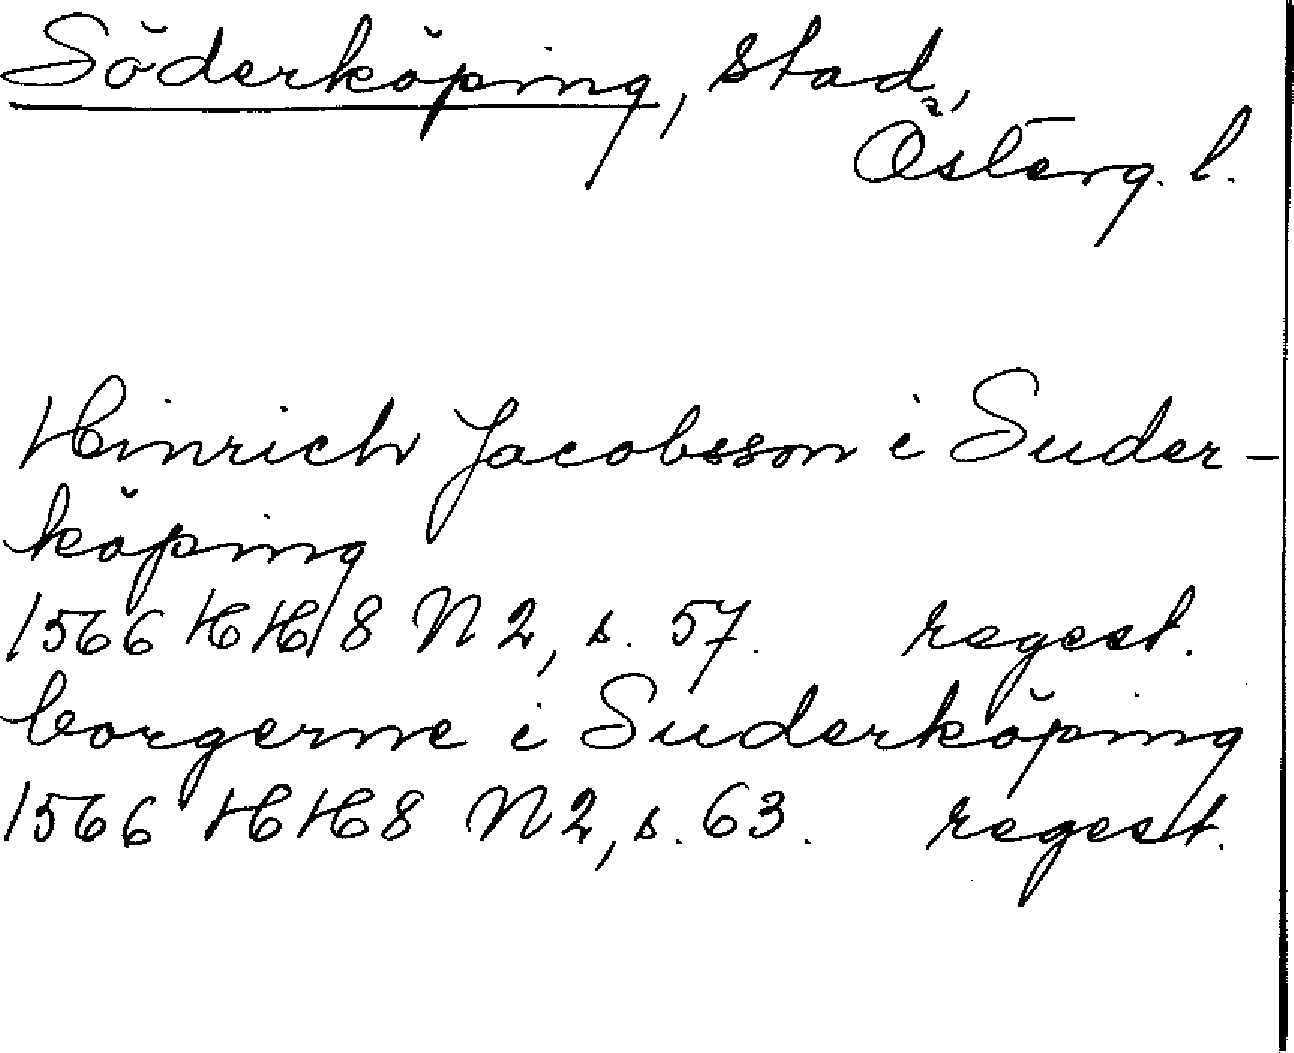 Söderköping, stad,
Österg. l.
Hinrich Jacobsson i Suder-
köping
1566 HH 8 N 2, s. 57. regest.
borgerne i Suderköping
1566 HH 8 N 2, s. 63. regest.